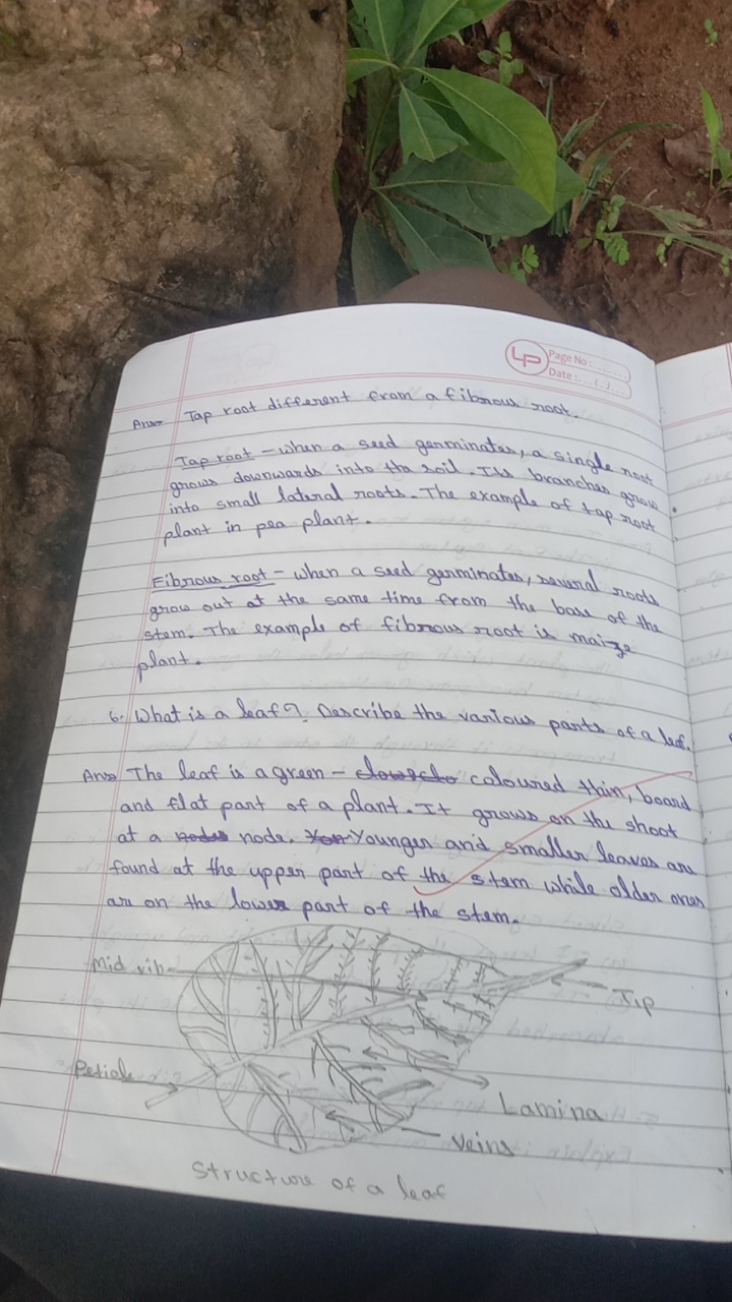 LP
Page No:
Date:
Ans⇒ Tap root different from a fibrous root.
Tap root – when a seed germinates, a single root
grows downwards into the soil. Its branches grow
into small lateral roots. The example of tap root
plant in pea plant.
Fibrous root – when a seed germinates, several roots
grow out at the same time from the base of the
stem. The example of fibrous root is maize
plant.
6. What is a leaf? Describe the various parts of a leaf.
Ans⇒ The leaf is a green – coloured thin, board
and flat part of a plant. It grows on the shoot
at a nodes node. You Younger and smaller leaves are
found at the upper part of the stem while older ones
are on the lower part of the stem.
Mid rib
Tip
Petiole
Lamina
Veins
Structure of a leaf